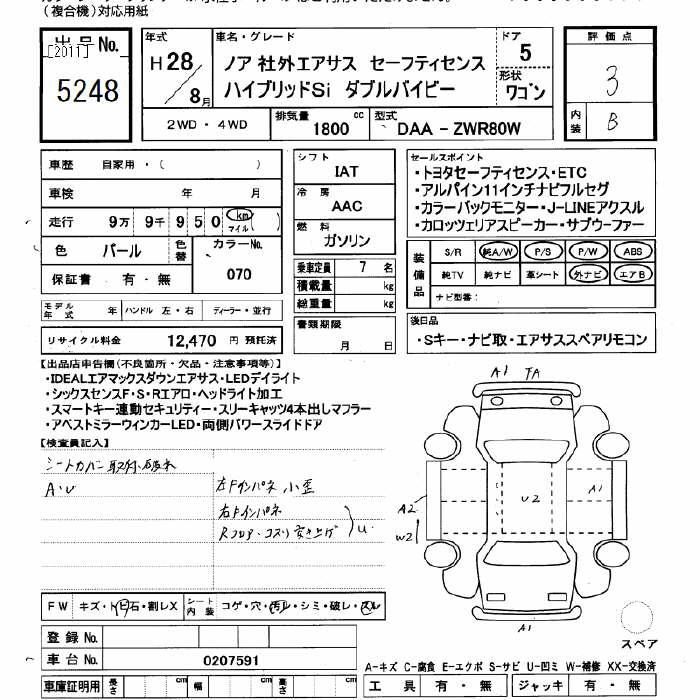 (複合機)対応用紙
出品No.
[2011]
5248
年式
H28/8月
車名・グレード
ノア 社外エアサス セーフティセンス
ハイブリッドSi ダブルバイビー
ドア
5
形状
ワゴン
評価点
3
内装
B
2WD・4WD
排気量
1800cc
型式
DAA-ZWR80W
車歴 自家用・( )
車検 年 月
走行 9万 9千 950 km マイル
色 パール 色替 カラーNo. 070
保証書 有・無
モデル年式 年 ハンドル 左・右 ディーラー・並行
リサイクル料金 12,470 円 預託済
シフト
IAT
冷房
AAC
燃料
ガソリン
乗車定員 7 名
積載量 kg
総重量 kg
書類期限
月 日
セールスポイント
・トヨタセーフティセンス・ETC
・アルパイン11インチナビフルセグ
・カラーバックモニター・J-LINEアクスル
・カロッツェリアスピーカー・サブウーファー
装備品
S/R 純A/W P/S P/W ABS
純TV 純ナビ 革シート 外ナビ エアB
ナビ型番:
後日品
・Sキー・ナビ取・エアサススペアリモコン
【出品店申告欄(不良箇所・欠品・注意事項等)】
・IDEALエアマックスダウンエアサス・LEDデイライト
・シックスセンスF・S・Rエアロ・ヘッドライト加工
・スマートキー連動セキュリティー・スリーキャッツ4本出しマフラー
・アベストミラーウィンカーLED・両側パワースライドドア
【検査員記入】
シートカバー取付、破れ
A・U
左Fインパネ 小歪
右Fインパネ
Rフロア・コスリ突き上げ U
A1 TA
A2
W2
U2
A1
A1
スペア
FW キズ・トビ石・割レX シート内装 コゲ・穴・汚レ・シミ・破レ・スレ
登録No.
車台No. 0207591
車庫証明用 長さ cm 幅 cm 高さ cm
A-キズ C-腐食 E-エクボ S-サビ U-凹ミ W-補修 XX-交換済
工具 有・無 ジャッキ 有・無